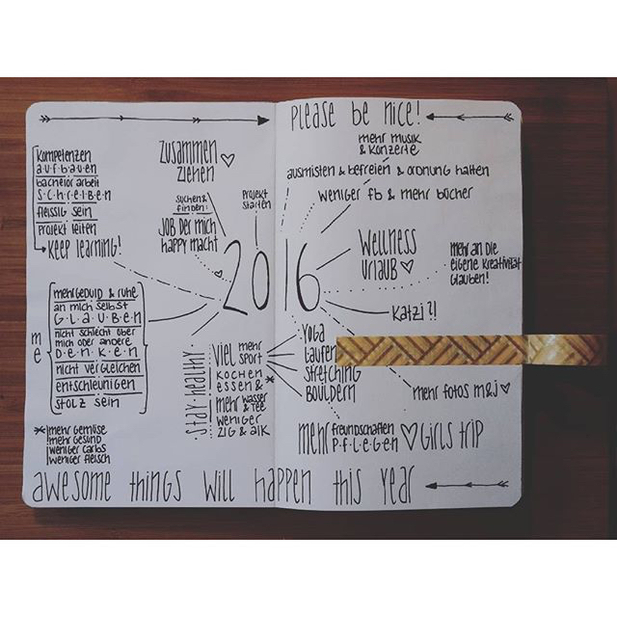 please be nice!
mehr musik
& konzerte
ausmisten & befreien & ordnung halten
weniger fb & mehr bücher
kompetenzen
aufbauen
bachelor arbeit
S·C·H·R·E·I·B·E·N
fleissig sein
projekt leiten
keep learning!
zusammen
ziehen ♡
suchen &
finden:
JOB Der mich
happy macht
projekt
starten
2016
Wellness
urlaub ♡
mehr an die
eigene kreativität
glauben!
katzi?!
me
mehr geduld & ruhe
an mich selbst
G·L·A·U·B·E·N
nicht schlecht über
mich oder andere
D·e·n·K·e·n
nicht vergleichen
entschleunigen
stolz sein
·stay·healthy·
viel mehr
sport
kochen
essen & *
mehr wasser
& tee
weniger
zig & alk
yoga
laufen
stretching
bouldern
mehr fotos m&j ♡
mehr freundschaften
P·f·L·e·G·e·n ♡ Girls trip
* !mehr gemüse
!mehr gesund
!weniger carbs
!weniger fleisch
awesome things will happen this year